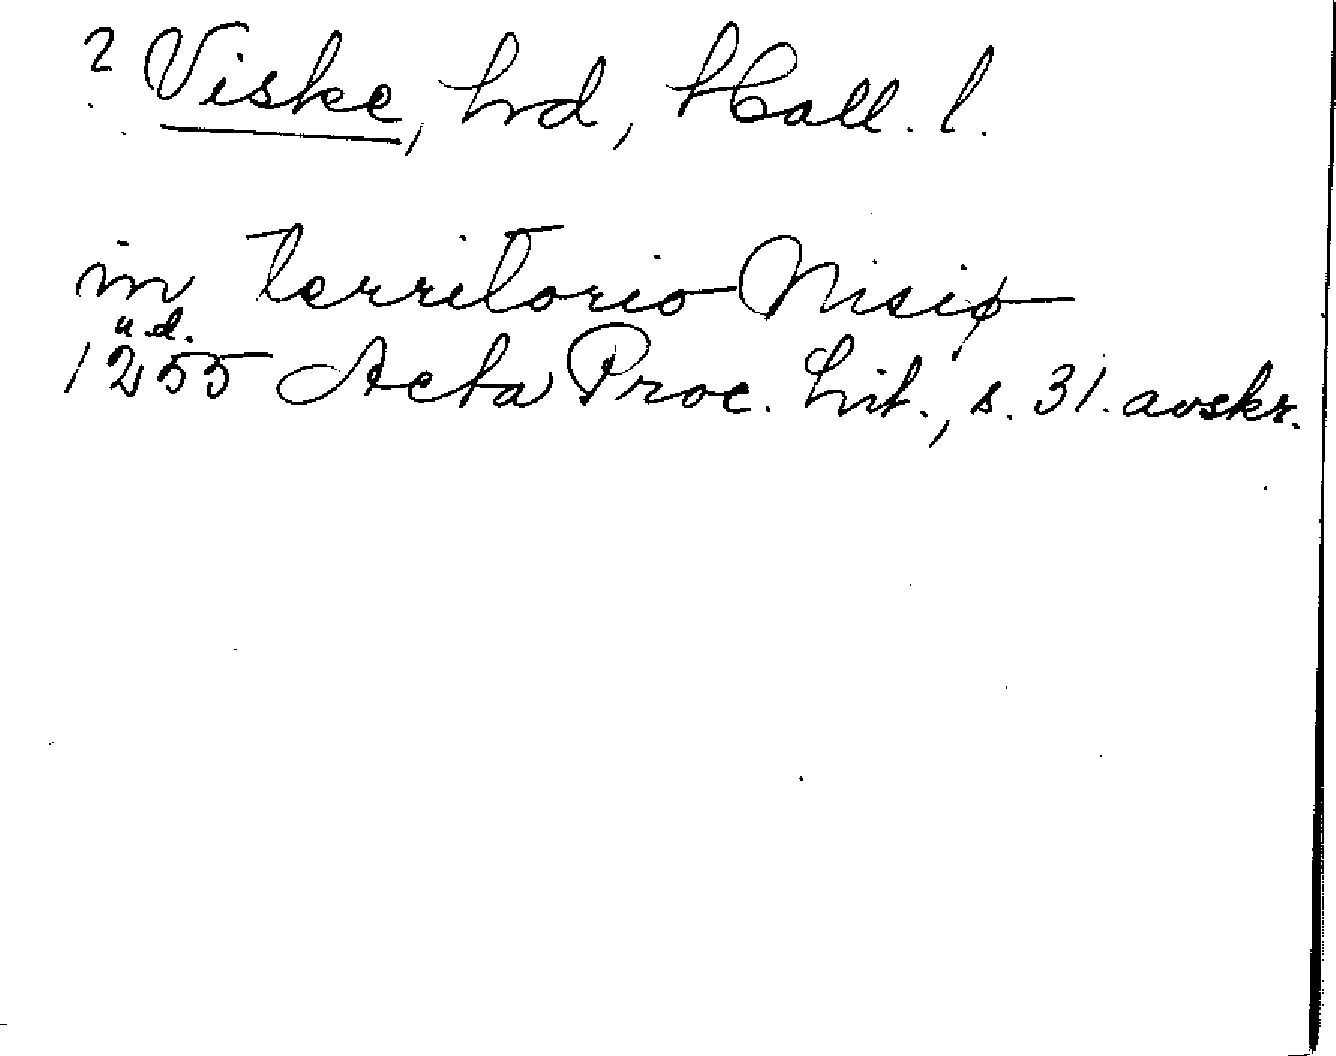 ? Viske, hrd, Hall. l.
in territorio Nisiø
u.d.
1255 Acta Proc. Lit., s. 31. avskr.